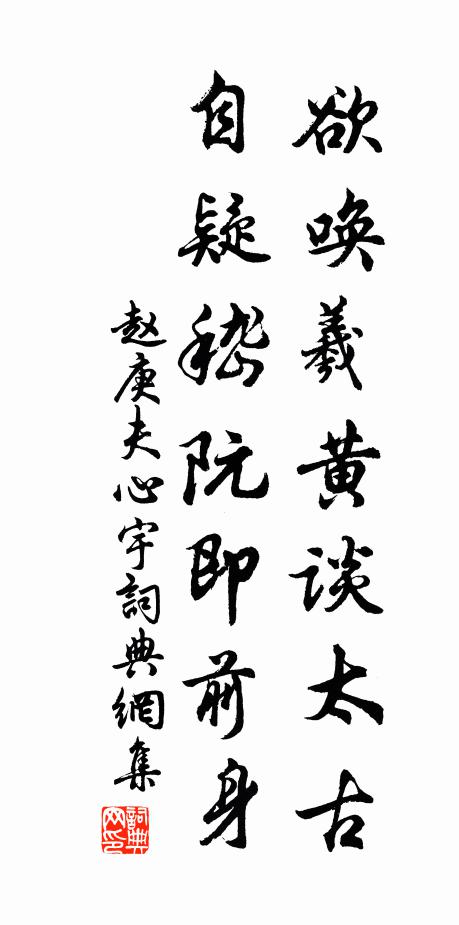 欲唤羲黄谈太古
自疑嵇阮即前身
赵庚夫心宇詞典網集
詞典网印